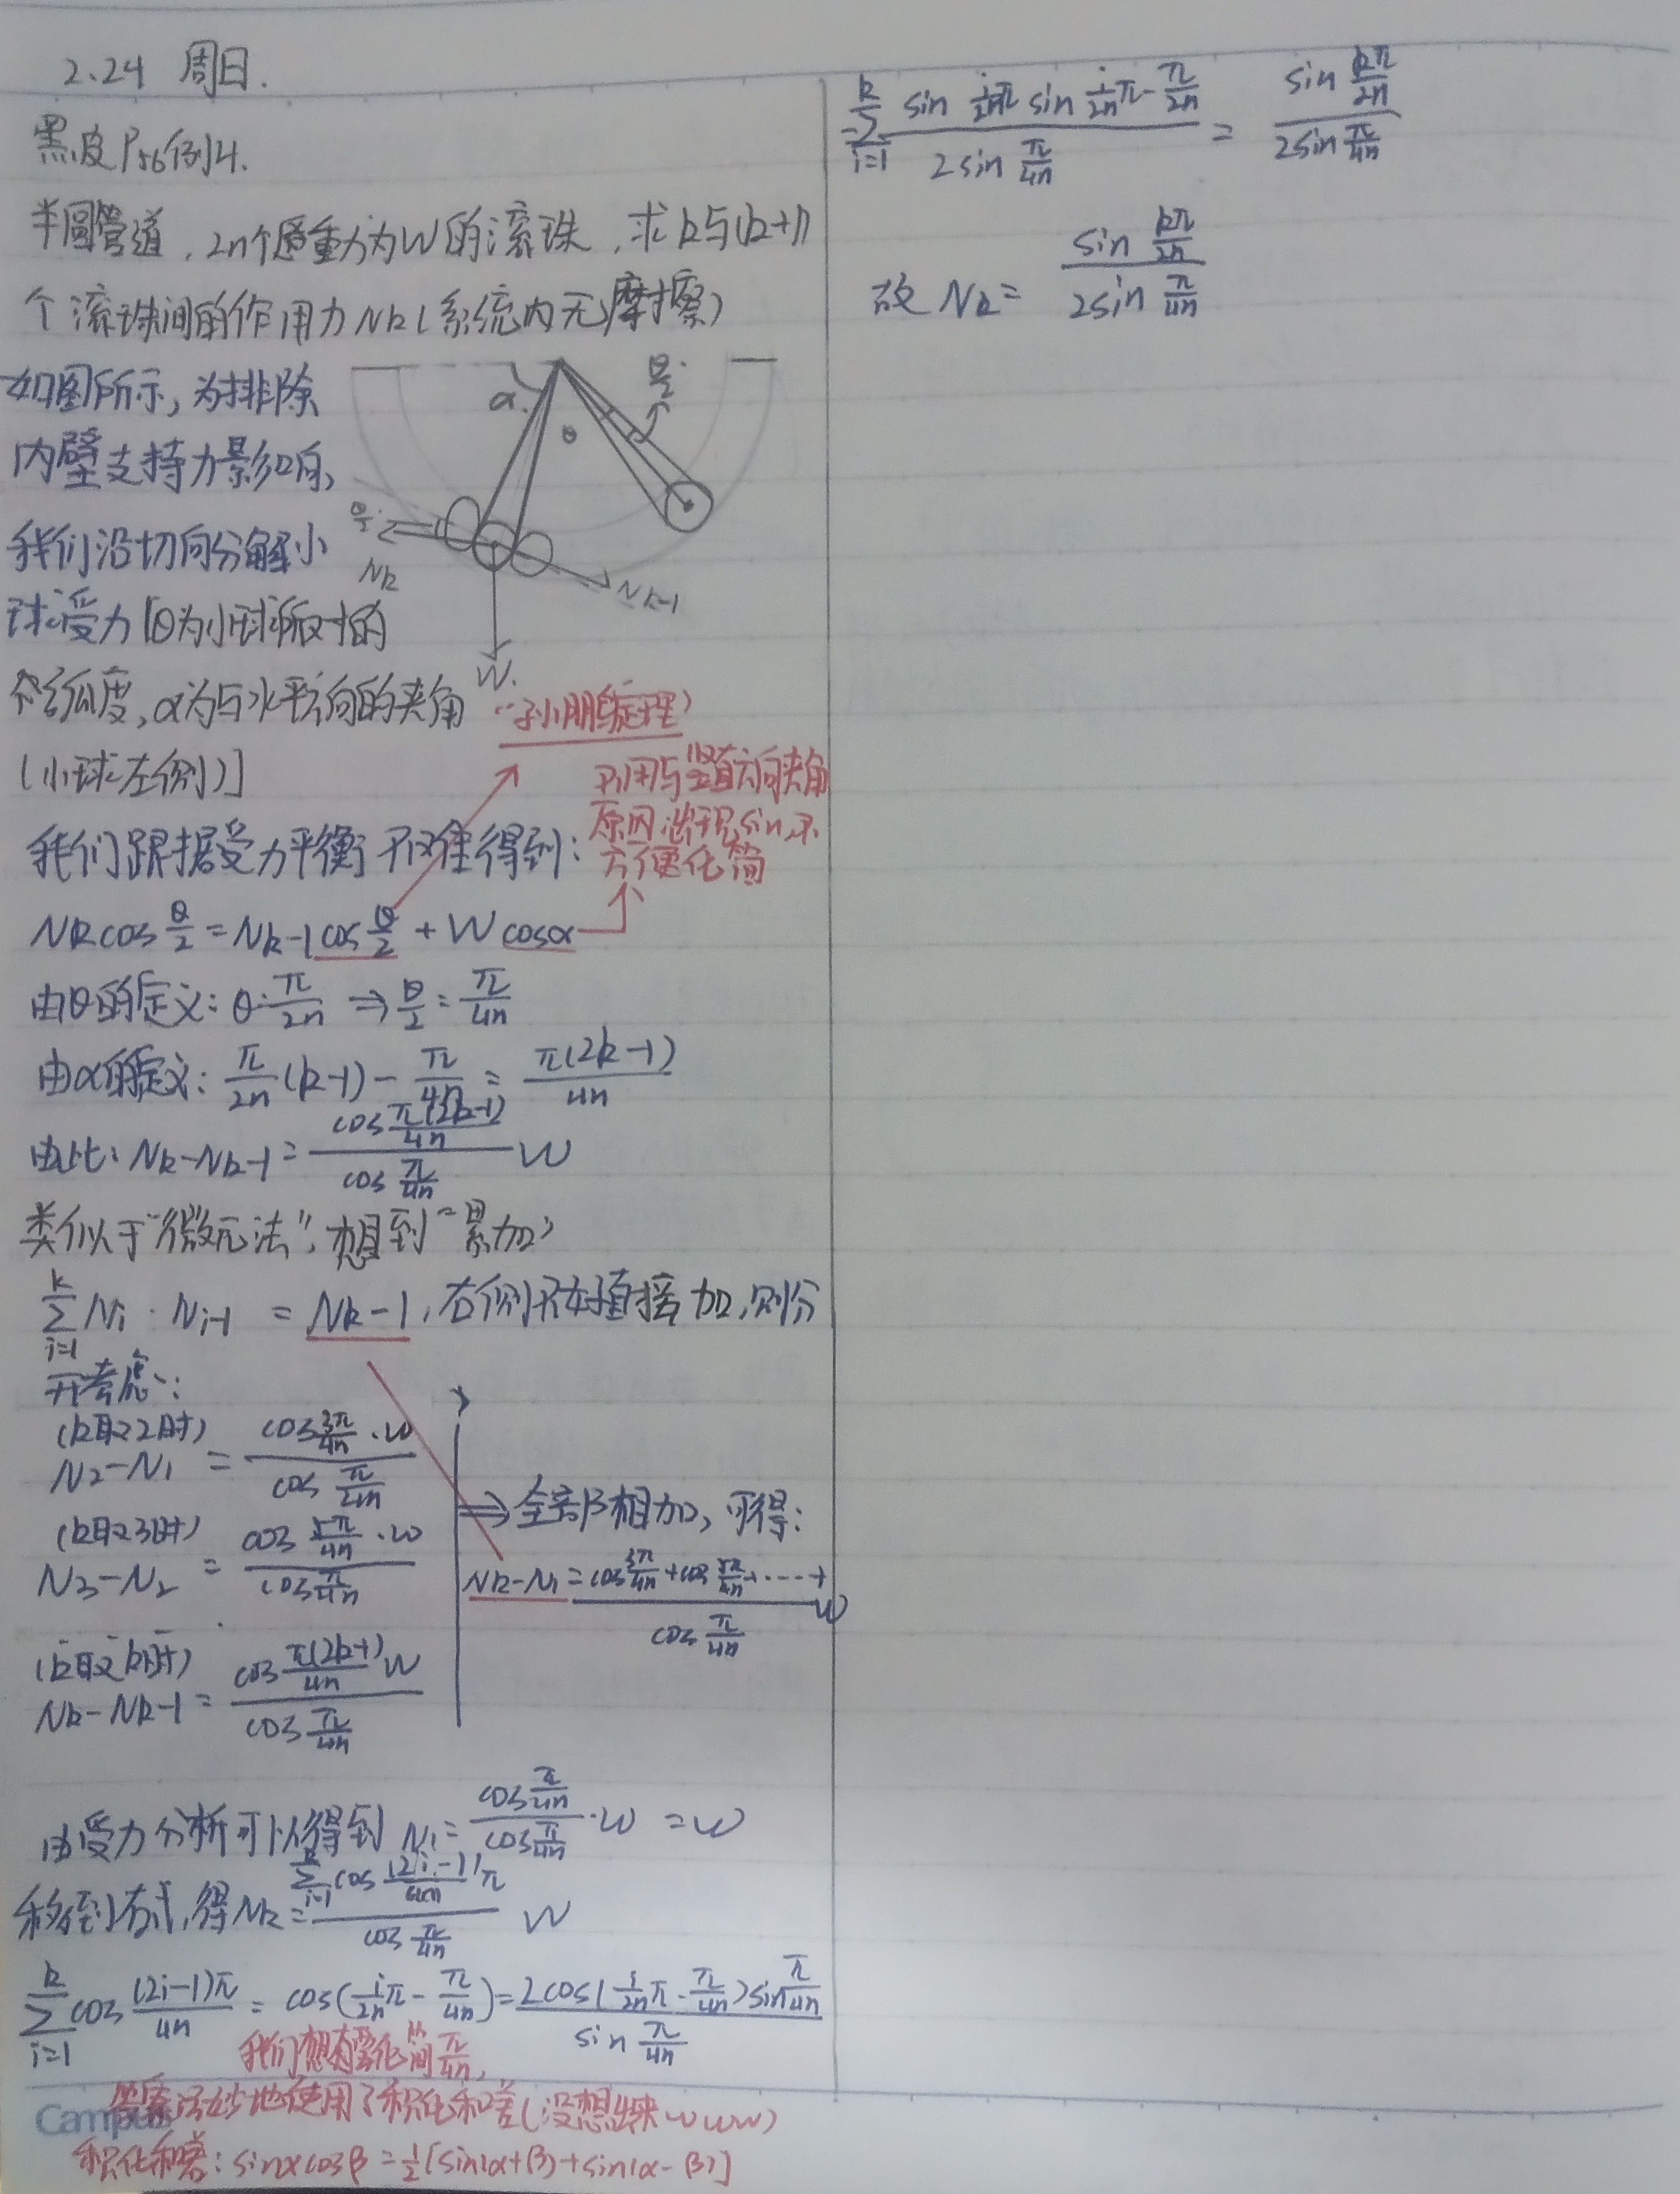 2.24 周日.
黑皮P56例4.
半圆管道,2n个重力为W的滚珠,求k与(k+1)
个滚珠间的作用力Nk(系统内无摩擦)
如图所示,为排除
内壁支持力影响,
我们沿切向分解小
球受力[θ为小球所对的
弧度,α为与水平方向的夹角
(小球左侧)]
α
θ
θ/2
θ/2
Nk
Nk-1
W.
不用与竖直方向夹角
原因:出现sin,不
方便化简
我们跟据受力平衡不难得到:
Nk cos θ/2 = Nk-1 cos θ/2 + W cosα
由θ的定义: θ=π/2n ⇒ θ/2 = π/4n
由α的定义: π/2n (k-1) - π/4n = π(2k-1)/4n
由此: Nk-Nk-1 = cos π(2k-1)/4n / cos π/4n W
类似于"微元法",想到"累加"
k∑i=1 Ni - Ni-1 = Nk-1,右侧不好直接加,则分
开考虑:
(k取2时)
N2-N1 = cos 3π/4n · W / cos π/4n
(k取3时)
N3-N2 = cos 5π/4n · W / cos π/4n
(k取k时)
Nk-Nk-1 = cos π(2k-1)/4n W / cos π/4n
⇒全部相加,可得:
Nk-N1 = cos 3π/4n + cos 5π/4n + ····+ / cos π/4n W
由受力分析可以得到 N1 = cos π/4n / cos π/4n · W = W
移到右式,得Nk = k∑i=1 cos (2i-1)π/4n / cos π/4n W
k∑i=1 cos (2i-1)π/4n = cos(i/2n π - π/4n) = 2cos(i/2n π - π/4n) sin π/4n / sin π/4n
我们想要化简 π/4n,
答案巧妙地使用了积化和差(没想出来www)
Campus
积化和差: sinαcosβ = 1/2[sin(α+β)+sin(α-β)]
k∑i=1 sin i/2n π sin i/2n π - π/2n / 2sin π/4n = sin kπ/2n / 2sin π/4n
故 Nk = sin kπ/2n / 2sin π/4n